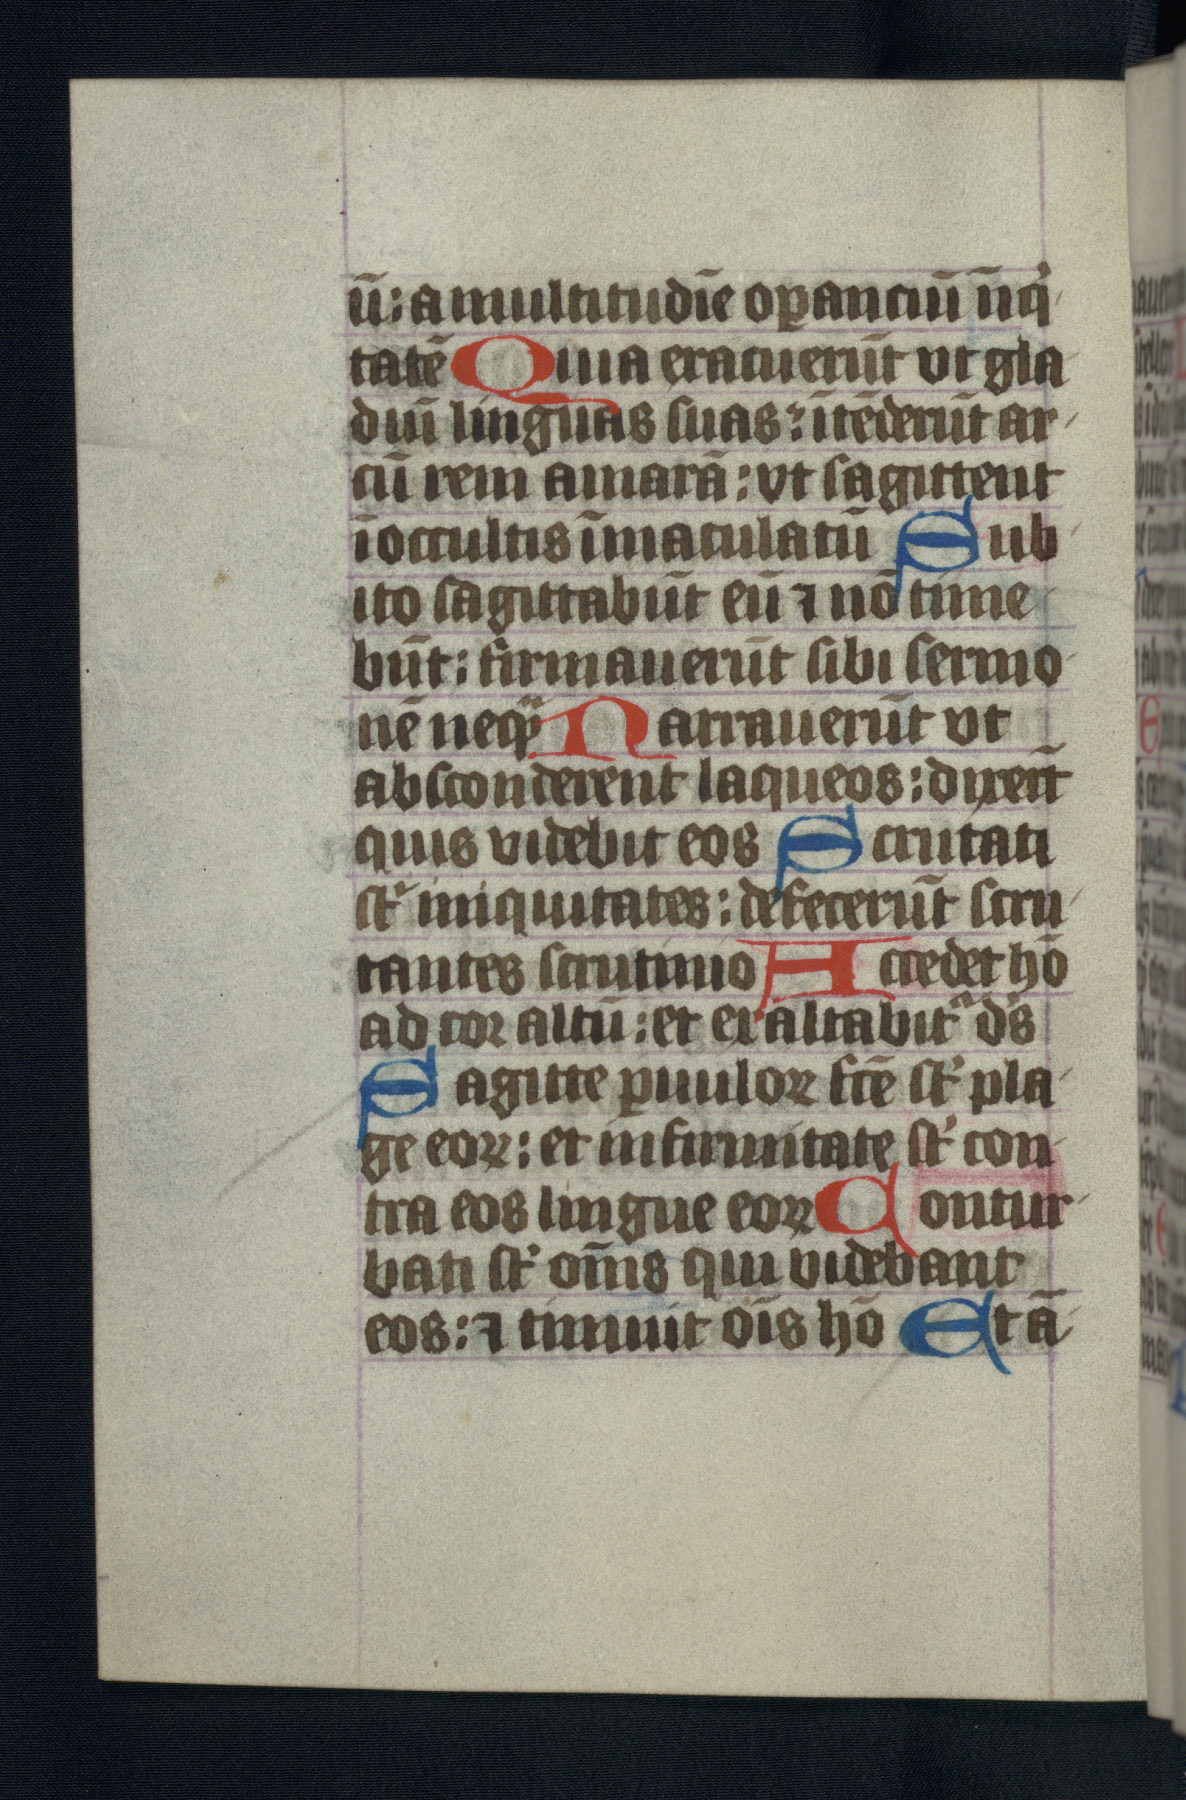 ū: a multitudīe oꝑanciū īiq̇
tatē Quia exacuerūt vt gla
diū linguas suas: ītēderūt ar
cū rem amarā: vt sagittent
ī occultis īmaculatū Sub
ito sagittabūt eū ⁊ nō time
būt: firmauerūt sibi sermo
nē neqͣ Narrauerūt vt
absconderent laqueos: dixert̄
quis videbit eos Scrutati
st̄ iniquitates: defecerūt scru
tantes scrutinio Accedet hō
ad cor altū: et exaltabit᷑ ds̄
Sagitte ꝑuuloꝝ fc̄e st̄ pla
ge eoꝝ: et infirmitate st̄ con
tra eos lingue eoꝝ Contur
bati st̄ om̄s qui videbant
eos: ⁊ timuit oīs hō Et ā